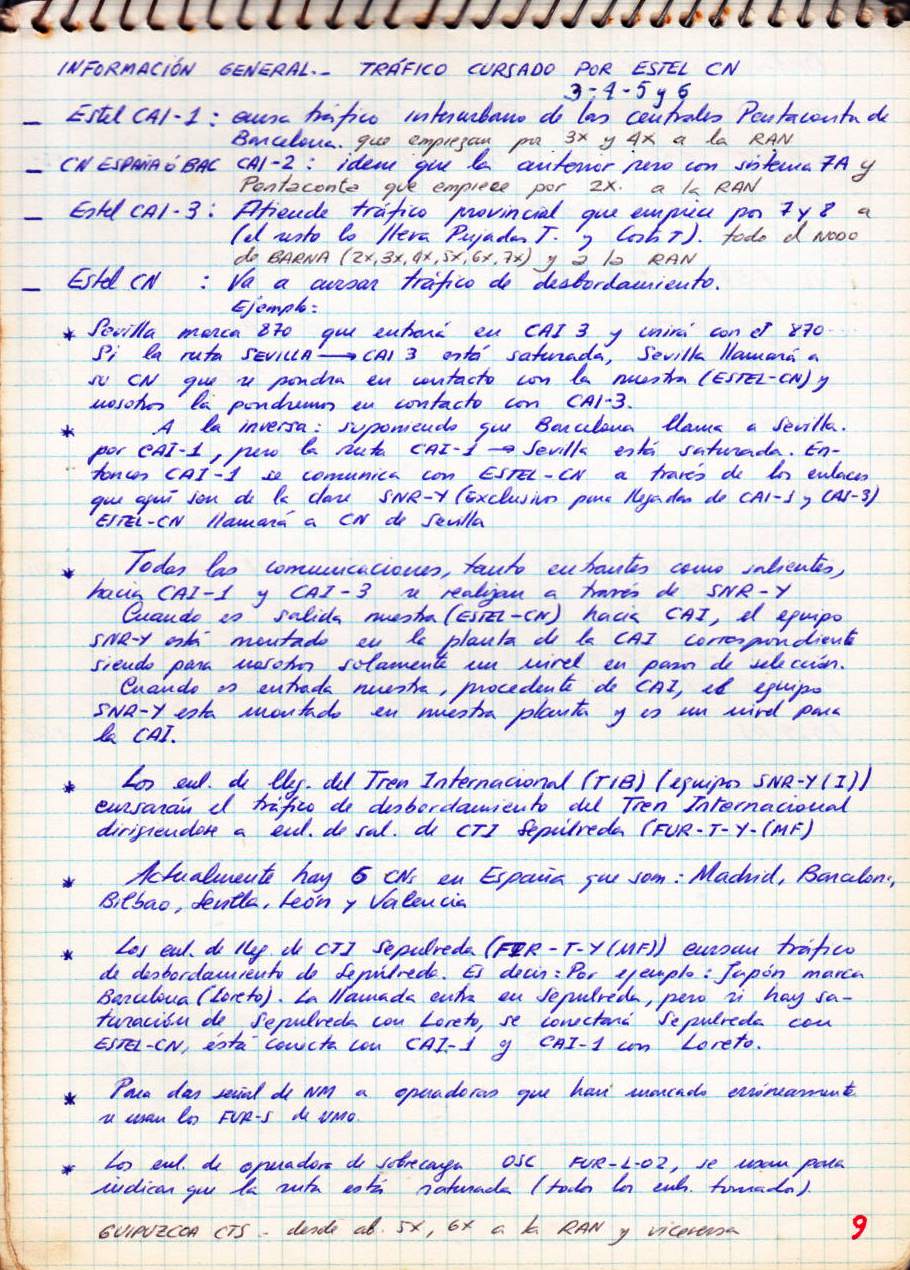 INFORMACIÓN GENERAL.- TRÁFICO CURSADO POR ESTEL CN
3-4-5 y 6
— Estel CAI-1: cursa tráfico interurbano de las centrales Pentaconta de
Barcelona. que empiezan por 3X y 4X a la RAN
— CN ESPAÑA ó BAC CAI-2: idem que la anterior pero con sistema 7A y
Pentaconta que empiece por 2X. a la RAN
— Estel CAI-3: Atiende tráfico provincial que empiece por 7 y 8 a
(el resto lo lleva Pujadas T. y Corts T). todo el NODO
de BARNA (2X,3X,4X,5X,6X,7X) y a la RAN
— Estel CN : Va a cursar tráfico de desbordamiento.
Ejemplo:
* Sevilla marca 870 que entrará en CAI 3 y unirá con el 870...
Si la ruta SEVILLA → CAI 3 está saturada, Sevilla llamará a
su CN que se pondra en contacto con la nuestra (ESTEL-CN) y
nosotros la pondremos en contacto con CAI-3.
* A la inversa: suponiendo que Barcelona llama a Sevilla.
por CAI-1, pero la ruta CAI-1 → Sevilla está saturada. En-
tonces CAI-1 se comunica con ESTEL-CN a través de los enlaces
que aquí son de la clase SNR-Y (Exclusivos para llegadas de CAI-1 y CAI-3)
ESTEL-CN llamará a CN de Sevilla
* Todas las comunicaciones, tanto entrantes como salientes,
hacia CAI-1 y CAI-3 se realizan a través de SNR-Y
Cuando es salida nuestra (ESTEL-CN) hacia CAI, el equipo
SNR-Y está montado en la planta de la CAI correspondiente
siendo para nosotros solamente un nivel en pasos de selección.
Cuando es entrada nuestra, procedente de CAI, el equipo
SNR-Y esta montado en nuestra planta y es un nivel para
la CAI.
* Los enl. de lleg. del Tren Internacional (TIB) (equipos SNR-Y(I))
cursarán el tráfico de desbordamiento del Tren Internacional
dirigiendose a enl. de sal. de CTI Sepúlveda (FUR-T-Y-(MF)
* Actualmente hay 6 CNs en España que son: Madrid, Barcelona,
Bilbao, Sevilla, León y Valencia
* Los enl. de lleg de CTI Sepulveda (FIR-T-Y(MF)) cursan tráfico
de desbordamiento de Sepúlveda. Es decir: Por ejemplo: Japón marca
Barcelona (Loreto). La llamada entra en Sepulveda, pero si hay sa-
turación de Sepulveda con Loreto, se conectará Sepulveda con
ESTEL-CN, ésta conecta con CAI-1 y CAI-1 con Loreto.
* Para dar señal de NM a operadoras que han marcado erróneamente
se usan los FUR-S de VMO.
* Los enl. de operadora de sobrecarga OSC FUR-L-02, se usan para
indicar que la ruta está saturada (todos los enl. tomados).
GUIPUZCOA CTS - desde ab. 5X, 6X a la RAN y viceversa
9